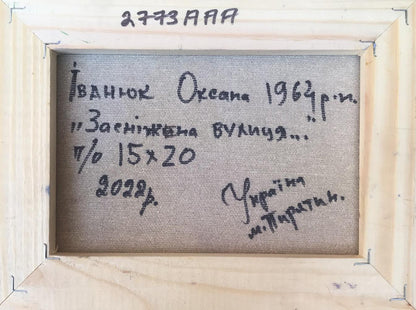 2773AAA
Іванюк Оксана 1964 р.н.
„Засніжена вулиця..."
п/о 15x20
2022р.
Україна
м. Пирятин.